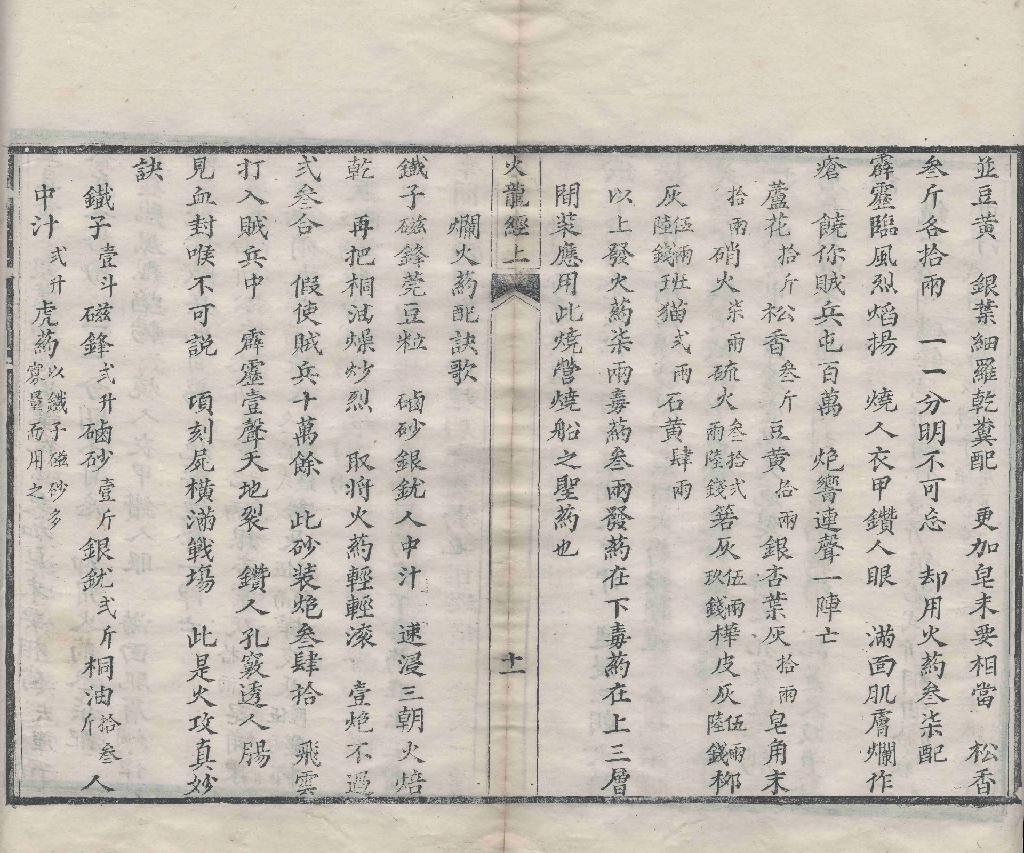 並豆黃　銀葉細羅乾糞配　更加皂末要相當　松香
叁斤各拾兩　一一分明不可忘　却用火葯叁柒配
霹靂臨風烈熖揚　燒人衣甲鑽人眼　滿面肌膚爛作
瘡　饒你賊兵屯百萬　炮響連聲一陣亡
蘆花拾斤松香叁斤豆黃拾兩銀杏葉灰拾兩皂角末
拾兩硝火柒兩硫火叁拾弍兩陸錢箬灰伍兩玖錢樺皮灰伍兩陸錢柳
灰伍兩陸錢班猫弍兩石黃肆兩
以上發火葯柒兩毒葯叁兩發葯在下毒葯在上三層
間裝應用此燒營燒船之聖葯也
火龍經上　十一
爛火葯配訣歌
鐵子磁鋒莞豆粒　硇砂銀銧人中汁　速浸三朝火焙
乾　再把桐油燥炒烈　取将火葯輕輕滚　壹炮不過
弍叁合　假使賊兵十萬餘　此砂裝炮叁肆拾　飛雲
打入賊兵中　霹靂壹聲天地裂　鑽人孔竅透人膓
見血封喉不可説　項刻屍橫滿戰塲　此是火攻真妙
訣
鐵子壹斗磁鋒弍升硇砂壹斤銀銧弍斤桐油拾叁斤人
中汁弍升虎葯以鐵子磁砂多寡量而用之